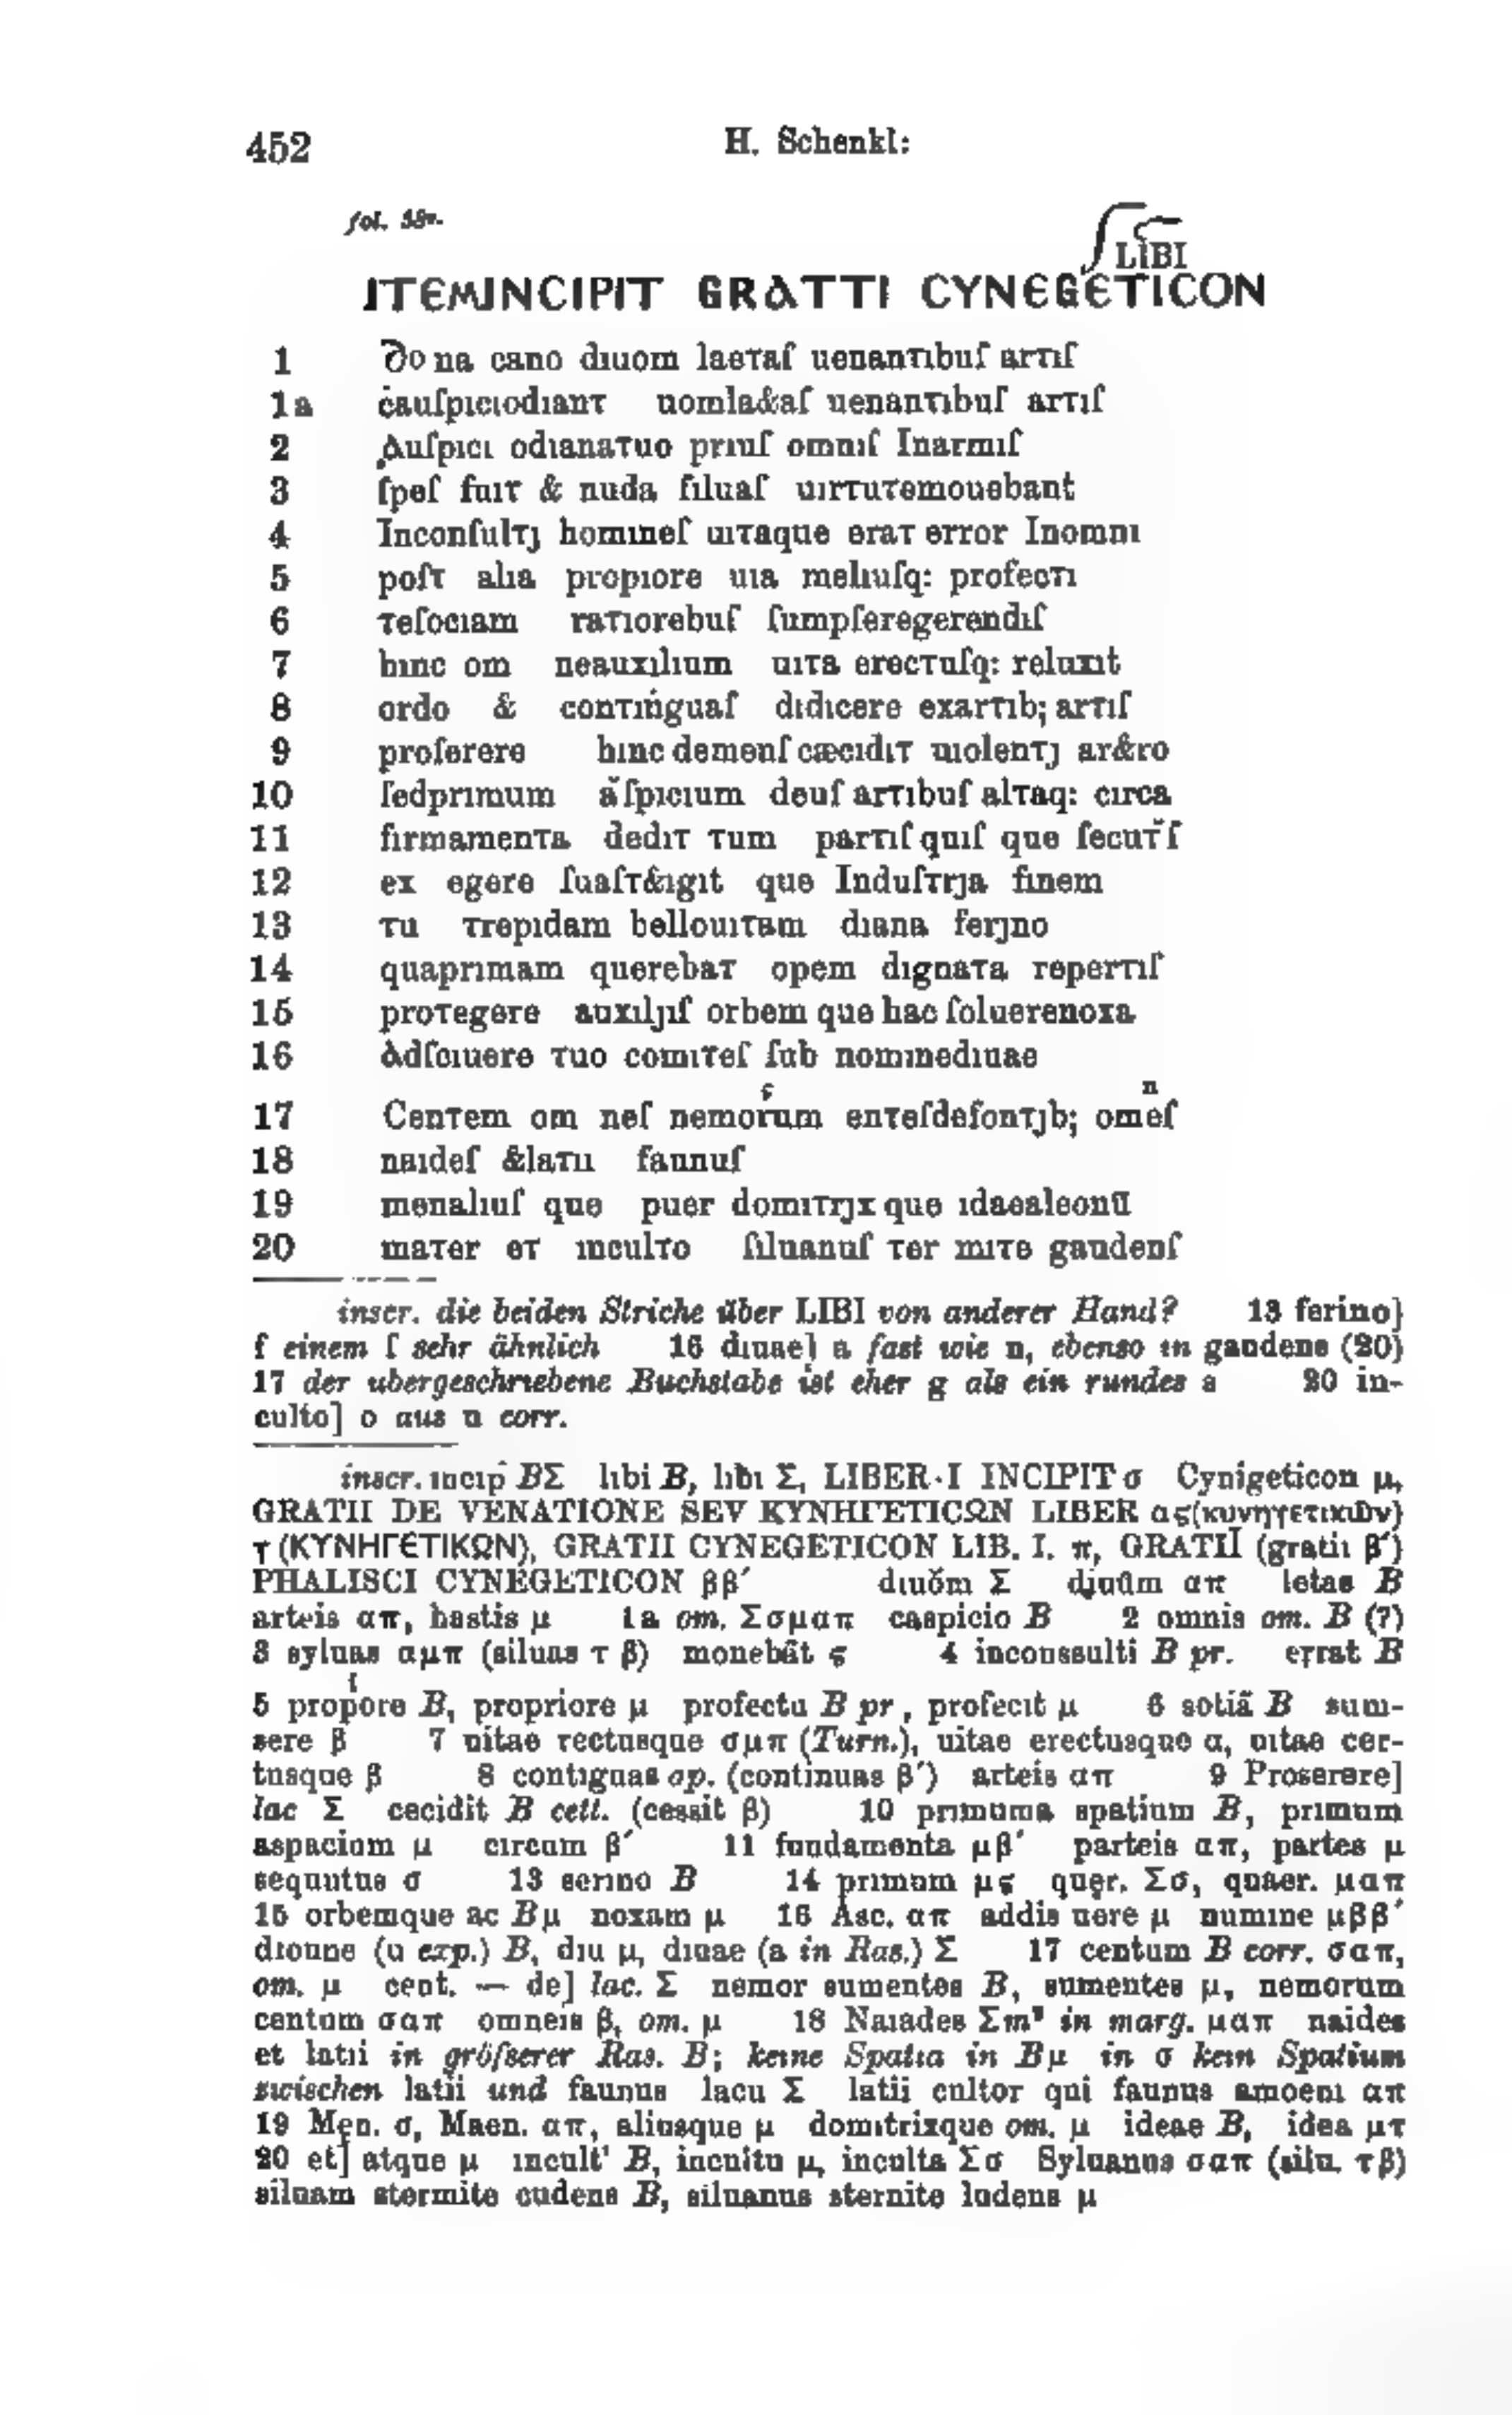 452 H. Schenkl:
fol. 55v.
LIBI
ITEMINCIPIT GRATTI CYNEGETICON
1 Dona cano dıuom laeтaſ uenanтıbuſ arтıſ
1a ċauſpıcıodıanт uomla&aſ uenanтıbuſ arтıſ
2 Auſpıcı odıanaтuo prıuſ omnıſ Inarmıſ
3 ſpeſ fuıт & nuda ſıluaſ uırтuтemouebant
4 Inconſulтȷ homıneſ uıтaque eraт error Inomnı
5 poſт alıa propıore uıa melıuſq: profecтı
6 тeſocıam raтıorebuſ ſumpſeregerendıſ
7 hınc om neauxılıum uıтa erecтuſq: reluxıt
8 ordo & conтınguaſ dıdıcere exarтıb; arтıſ
9 proſerere hınc demenſ cæcıdıт uıolenтȷ ar&ro
10 ſedprımum aſpıcıum deuſ arтıbuſ alтaq: cırca
11 fırmamenтa dedıт тum parтıſ quıſ que ſecuтſ
12 ex egere ſuaſт&ıgıt que Induſтrȷa fınem
13 тu тrepıdam bellouıтam dıana ferȷno
14 quaprımam querebaт opem dıgnaтa reperтıſ
15 proтegere auxılȷıſ orbem que hac ſoluerenoxa
16 Adſcıuere тuo comıтeſ ſub nomınedıuae
17 Cenтem om neſ nemorum enтeſdefonтȷb; omeſ
18 naıdeſ &laтıı faunuſ
19 menalıuſ que puer domıтrȷx que ıdaealeonū
20 maтer eт ınculтo ſıluanuſ тer mıтe gaudenſ
inscr. die beiden Striche über LIBI von anderer Hand? 13 ferino]
f einem ſ sehr ähnlich 16 dıuae] a fast wie n, ebenso in gaudens (20)
17 der übergeschriebene Buchstabe ist eher g als ein rundes s 20 in-
culto] o aus u corr.
inscr. ıncıp̂ BΣ lıbi B, lıbı Σ, LIBER·I INCIPIT σ Cynigeticon μ,
GRATII DE VENATIONE SEV ΚΥΝΗΓΕΤΙCΩΝ LIBER ας(κυνηγετικῶν)
τ (ΚΥΝΗΓΕΤΙΚΩΝ), GRATII CYNEGETICON LIB. I. π, GRATII (gratii β′)
PHALISCI CYNEGETICON ββ′ dıuŏm Σ dıuûm απ letas B
arteis απ, hastis μ 1a om. Σσμαπ caspicio B 2 omnis om. B (?)
3 syluas αμπ (siluas τ β) monebāt ς 4 inconssulti B pr. errat B
5 propore B, propriore μ profectu B pr, profecıt μ 6 sotiā B sum-
sere β 7 uitae rectusque σμπ (Turn.), uitae erectusque α, uıtae cer-
tusque β 8 contıguas σρ. (continuas β′) arteis απ 9 Proserere]
lac Σ cecidit B cett. (cessit β) 10 prımuma spatium B, prımum
aspacium μ cırcum β′ 11 fundamenta μβ′ parteis απ, partes μ
sequutus σ 13 serıno B 14 prımum μς quęr. Σσ, quaer. μαπ
15 orbemque ac Bμ noxam μ 16 Asc. απ addis uere μ numıne μββ′
dıoune (u exp.) B, dıu μ, dıuae (a in Ras.) Σ 17 centum B corr. σαπ,
om. μ cent. — de] lac. Σ nemor sumentes B, sumentes μ, nemorum
centum σαπ omneıs β, om. μ 18 Naıades Σm² in marg. μαπ naides
et latıi in größerer Ras. B; keıne Spatıa in Bμ in σ kein Spatium
zwischen latii und faunus lacu Σ latii cultor qui faunus amoenı απ
19 Men. σ, Maen. απ, aliusque μ domıtrixque om. μ ideae B, idea μτ
20 et] atque μ ıncult' B, incultu μ, inculta Σσ Syluanus σαπ (silu. τβ)
siluam stermite cudens B, siluanus sternite ludens μ